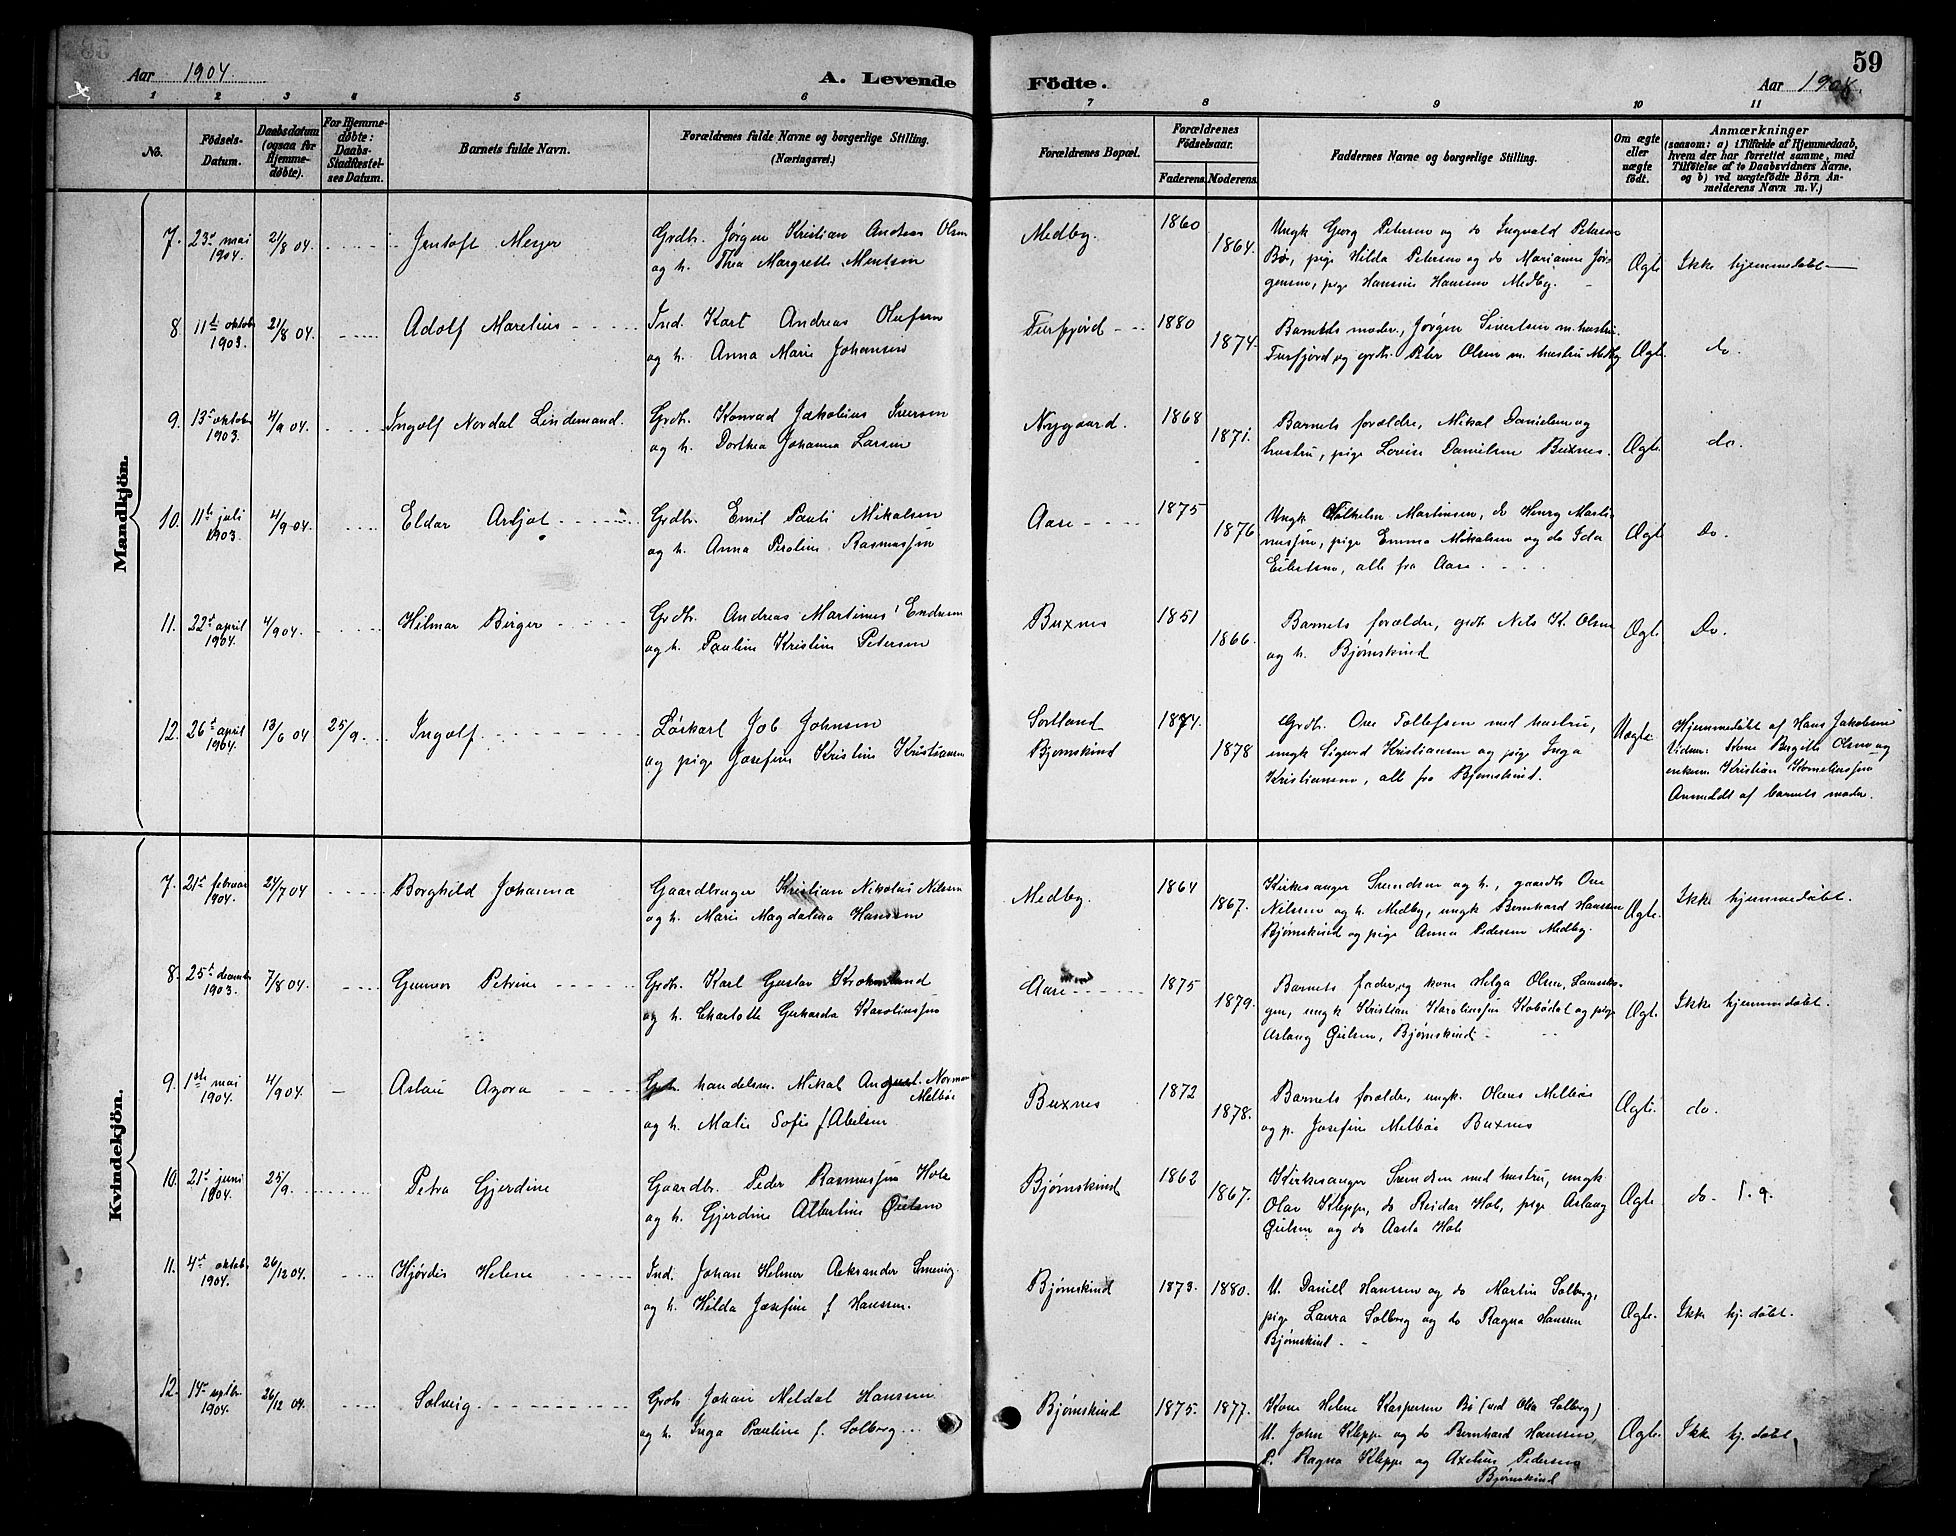 Aar 1904.
A. Levende
Födte.
Aar 1904.
59
1 2 3 4 5 6 7 8 9 10 11
No.
Födsels-Datum.
Daabsdatum (ogsaa for Hjemmedøbte).
For Hjemmedøbte: Daabs-Stadfæstelses Datum.
Barnets fulde Navn.
Forældrenes fulde Navne og borgerlige Stilling. (Næringsvei.)
Forældrenes Bopæl.
Forældrenes Födselsaar.
Faderens. Moderens.
Faddernes Navne og borgerlige Stilling.
Om ægte eller uægte födt.
Anmærkninger (saasom: a) i Tilfælde af Hjemmedaab, hvem der har forrettet samme, med Tilföielse af to Daabsvidners Navne, og b) ved uægtefödte Börn Anmelderens Navn m. V.)
Mandkjön.
7. 23de mai 1904. 21/8 04. Jentoft Meyer
Grdb. Jørgen Kristian Andreas Olsen
og h. Thea Margrethe Mentsen
Medby. 1860 1864.
Ungk Georg Petersen og do Ingvald Petersen
Bø, pige Hilda Petersen og do Marianne Jør-
gensen, pige Hansine Hansen Medby.
Ægte Ikke hjemmedøbt
8. 11te oktob 1903. 21/8 04. Adolf Marelius
Ind. Kart Andreas Olufsen
og h. Anna Marie Johansen
Furfjord 1880 1874.
Barnets moder, Jørgen Sivertsen m. hustru
Furfjord og grdb. Peter Olsen m. hustru Medby
Ægte do.
9. 13de oktober 1903. 4/9 04. Ingolf Nordal Lindemand.
Grdb. Konrad Jakobius Iversen
og h. Dorthea Johanna Larsen
Nygaard. 1868 1871.
Barnets forældre, Mikal Danielsen og
hustru, pige Lovise Danielsen Buxnes.
Ægte do.
10. 11te juli 1903. 4/9 04. Eldar Arljot
Grdbr. Emil Pauli Mikalsen
og h. Anna Peroline Rasmussen
Aase 1875 1876
Ungk Vilhelm Martinsen, do Henry Marti-
nussen, pige Emma Mikalsen og do Ida
Eilertsen, alle fra Aase.
Ægte Do.
11. 22de april 1904. 4/9 04. Hilmar Birger
Grdbr. Andreas Martinus Endresen
og h. Pauline Kristine Petersen
Buxnes 1851 1866.
Barnets forældre, grdb Nils K. Olsen
og h. Bjørnskind
Ægte Do.
12. 26de april 1904. 13/6 04 25/9. Ingolf.
Løskarl Job Johnsen
og pige Josefine Kristine Kristiansen
Sortland
Bjørnskind
1874. 1878
Grdb. Ove Tollefsen med hustru,
ungk Sigurd Kristiansen og pige Inga
Kristiansen, alle fra Bjørnskind.
Uægte
Hjemmedøbt af Hans Jakobsen
Vidner: Kone Birgitte Olsen og
enkem. Kristian Korneliussen
Anmeldt af barnets moder.
Kvindekjön.
7. 21de februar 1904. 24/7 04 Borghild Johanna
Gaardbruger Kristian Nikolai Nilsen
og h. Marie Magdalina Hansen
Medby. 1864 1867.
Kirkesanger Svendsen og h., gaardb Ove
Nilsen og h. Medby, ungk Bernhard Hansen
Bjørnskind og pige Anna Pedersen Medby.
Ægte. Ikke hjemmedøbt.
8. 25de december 1903. 7/8 04 Gunvor Petrine
Grdb. Karl Gustav Krokmland
og h. Charlotte Gerharda Karoliussen
Aase 1875 1879.
Barnets fader, og kone Helga Olsen,
ungk Kristian Karoliussen Kobbedal og pige
Aslaug Øielsen, Bjørnskind
Ægte. Ikke hjemmedøbt.
9. 1ste mai 1904. 4/9 04. Aslau Azora
handelsm. Mikal August Norman
Melbøe
og h. Malie Sofie f. Abelsen
Buxnes 1872 1878.
Barnets forældre, ungk. Olaus Melbøe
og p. Josefine Melbøe Buxnes
Ægte. do.
10. 21de juni 1904. 25/9. Petra Gjerdine
Gaardbr. Peder Rasmussen Hole
og h. Gjerdine Albertine Øielsen
Bjørnskind 1862 1867.
Kirkesanger Svendsen med hustru, ungk
Olav Kleppe, do Reidar Hole, pige Aslaug
Øielsen og do Aasta Hole
Ægte. do.
11. 4de oktob 1904. 26/12 04. Hjørdis Helene
Ind. Johan Helmer Aleksander
og h. Hilda Josefine f. Hansen.
Bjørnskind 1873. 1880.
U. Daniel Hansen og do Martin Solberg,
pige Laura Solberg og do Ragna Hansen
Bjørnskind
Ægte. Ikke hj. døbt.
12. 14de septbr 1904. 26/12 04. Solveig
Grdb Johan Meldal Hansen
og h. Inga Pauline f. Solberg
Bjørnskind 1875. 1877.
Kone Helene Kaspersen Bø (ved Olea Solberg)
U. John Kleppe og do Bernhard Hansen,
P. Ragna Kleppe og Axeline Pedersen
Bjørnskind
Ægte. Ikke hj. døbt.